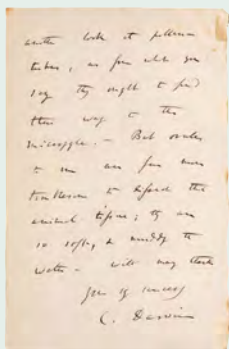 another look at pollen
tubes, as from what you
say they ought to find
their way to the
micropyle. — But ovules
to me are far more
troublesome to dissect than
animal tissue; they are
so soft, & muddy the
water. — With many thanks
yours very sincerely
C. Darwin